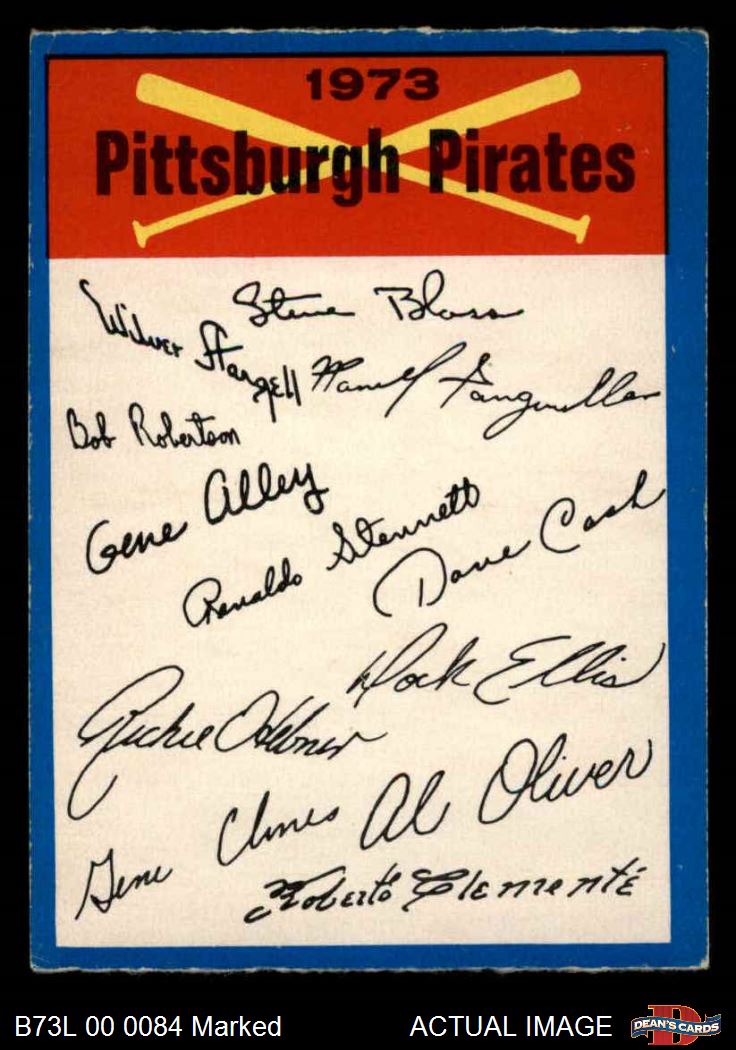 1973
Pittsburgh Pirates
Steve Blass
Wilver Stargell
Manuel Sanguillen
Bob Robertson
Gene Alley
Renaldo Stennett
Dave Cash
Dock Ellis
Richie Hebner
Gene Clines
Al Oliver
Roberto Clemente
B73L 00 0084 Marked
ACTUAL IMAGE
D
DEAN'S CARDS